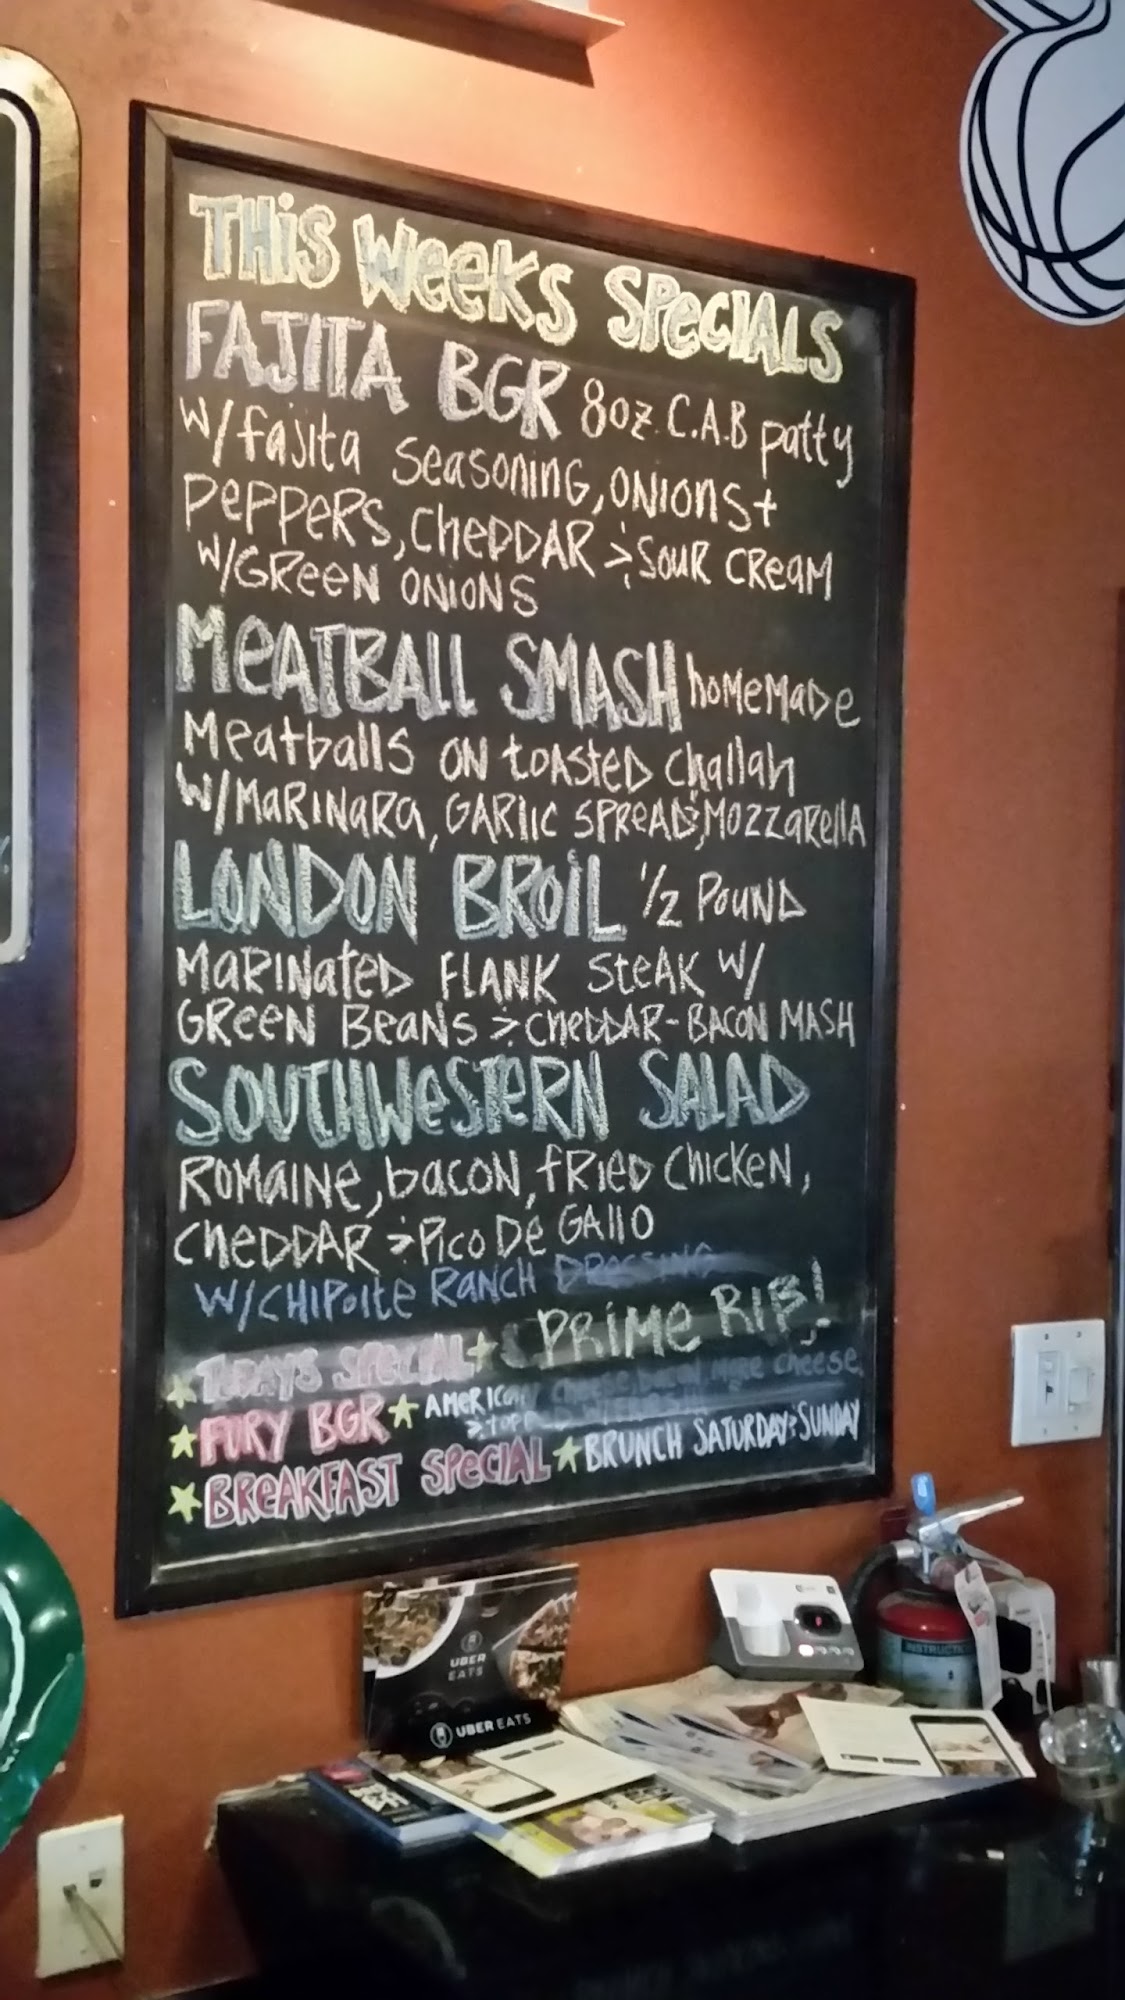 THiS WeeKS SPeCIALS
FAJITA BGR 8oz. C.A.B patty
W/fajita Seasoning, ONIONS +
PePPeRS, CheDDAR & SOUR CReAM
W/GReeN ONIONS
MeATBALL SMASH hoMeMaDe
Meatballs ON toASteD challah
W/MaRINaRa, GARlIC SPReAD & MOZZaRellA
LONDON BROiL 1/2 POUND
MaRINateD FLANK SteAK W/
GReeN BeaNS & CheDDAR-BACON MASH
SOUTHWeSTERN SALAD
ROMAINe, bacON, fRIeD ChicKeN,
CheDDAR & PiCo De GAllO
W/CHIPOlte RaNCH DReSSING
TODAYS SPECIAL PRiMe RIB!
FURY BGR AMeRICaN cheese, bacon, more cheese
BReAKFAST SPeCIAL BRUNCH SATURDAY & SUNDAY
UBER
EATS
UBER EATS
INSTRUCTIONS